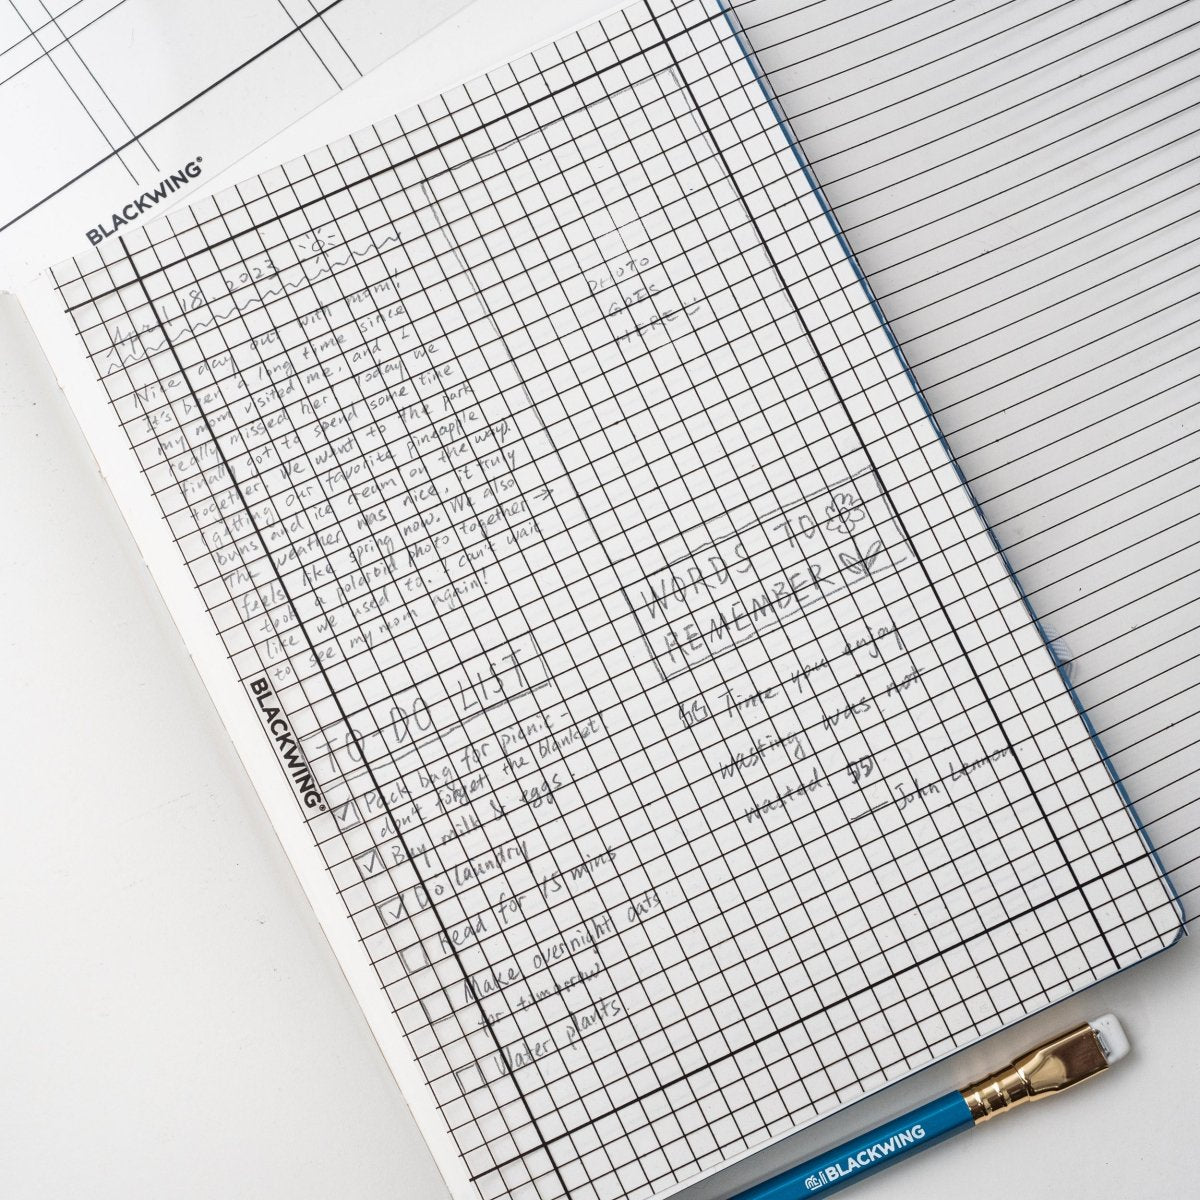 BLACKWING®
April 18. 2023
Nice day out with mom!
It's been a long time since
my mom visited me, and I
really missed her. Today we
finally got to spend some time
together. We went to the park
getting our favorite pineapple
buns and ice cream on the way.
The weather was nice, it truly
feels like spring now. We also
took a polaroid photo together →
like we used to. I can't wait
to see my mom again!
PHOTO
GOES
HERE
TO-DO LIST
☑ Pack bag for picnic
don't forget the blanket
☑ Buy milk & eggs.
☑ Do laundry
☐ Read for 15 mins
☐ Make overnight oats
for tomorrow
☐ Water plants.
WORDS TO
REMEMBER
“ Time you enjoy
wasting was not
wasted. ”
— John Lennon.
BLACKWING®
BLACKWING